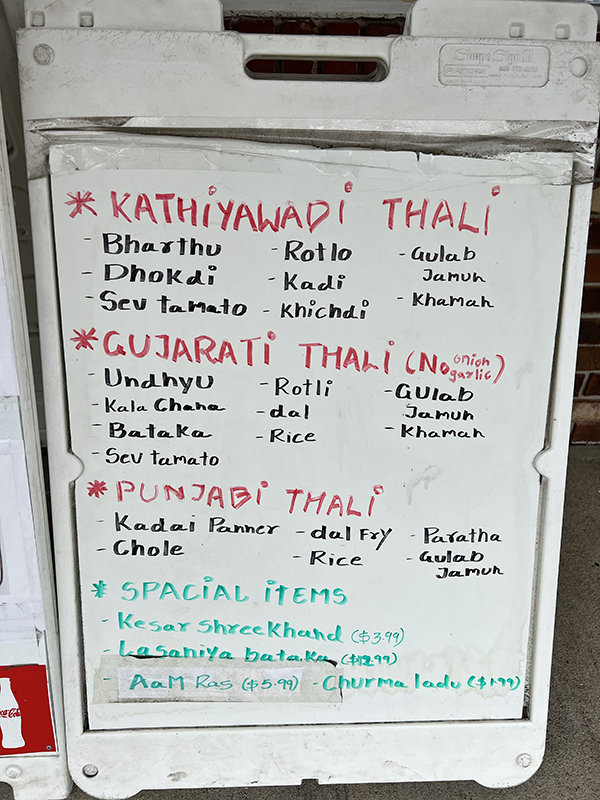 * KATHiYAWADi THALi
- Bharthu - Rotlo - Gulab Jamun
- Dhokdi - Kadi - Khaman
- Sev tamato - Khichdi
* GUJARATi THALi (No onion garlic)
- Undhyu - Rotli - Gulab Jamun
- Kala Chana - dal - Khaman
- Bataka - Rice
- Sev tamato
* PUNJABi THALi
- Kadai Panner - dal Fry - Paratha
- Chole - Rice - Gulab Jamun
* SPACiAL iTEMS
- Kesar Shreekhand ($3.99)
- Lasaniya bataka ($12.99)
- AaM Ras ($5.99) - Churma ladu ($1.99)
Coca-Cola